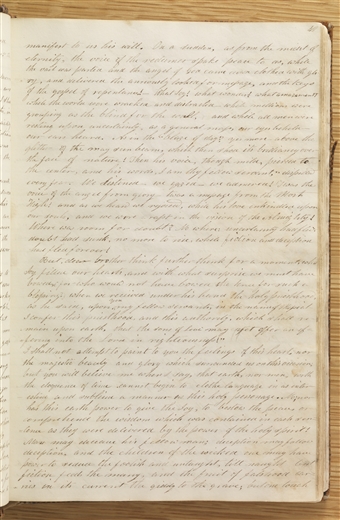 manifest to us his will. On a sudden, as from the midst of
eternity, the voice of the redeemer spake peace to us, while
the vail was parted and the angel of God came down clothed with glo-
ry, and delivered the anxiously looked for message, and the keys
of the gospel of repentance! What joy! what wonder! what amazement!
While the world were racked and distracted, while millions were
grouping as the blind for the wall, and while all men were
resting upon uncertainty, as a general mass, our eyes beheld,
our ears heard. As in the "blaze of day;" yes, more, above the
glitter of the May sun beam, which then shed its brilliancy over
the face of nature! Then his voice, though mild, pierced to
the center, and his words, "I am thy fellow servant," dispelled
every fear. We listened, we gazed, we admired! 'Twas the
voice of the angel from glory, 'twas a message from the Most
High! and as we heard we rejoiced, while his love enkindled upon
our souls, and we were rapt in the vision of the Almighty!
Where was room for doubt? No where: uncertainty had fled,
doubt had sunk, no more to rise, while fiction and deception
had fled forever!
But, dear brother think, further think for a moment, what
joy filled our hearts and with what surprise we must have
bowed, (for who would not have bowed the knee for such a
blessing?) when we received under his hand the holy priesthood,
as he said, "upon you my fellow servants, in the name of Messiah
I confer this priesthood and this authority, which shall re-
main upon earth, that the sons of Levi may yet offer an of-
fering unto the Lord in righteousness!"
I shall not attempt to paint to you the feelings of this heart, nor
the majestic beauty and glory which surrounded us on this occasion;
but you will believe me when I say, that earth, nor men, with
the eloquence of time, cannot begin to clothe language in as inter-
esting and sublime a manner as this holy personage. No; nor
has this earth power to give the joy, to bestow the peace, or
comprehend the wisdom which was contained in each sen-
tence as they were delivered by the power of the Holy Spirit!
Man may deceive his fellow man; deception may follow
deception, and the children of the wicked one may have
power to seduce the foolish and untaught, till nought but
fiction feeds the many, and the fruit of falsehood car-
ries in its current the giddy to the grave; but one touch